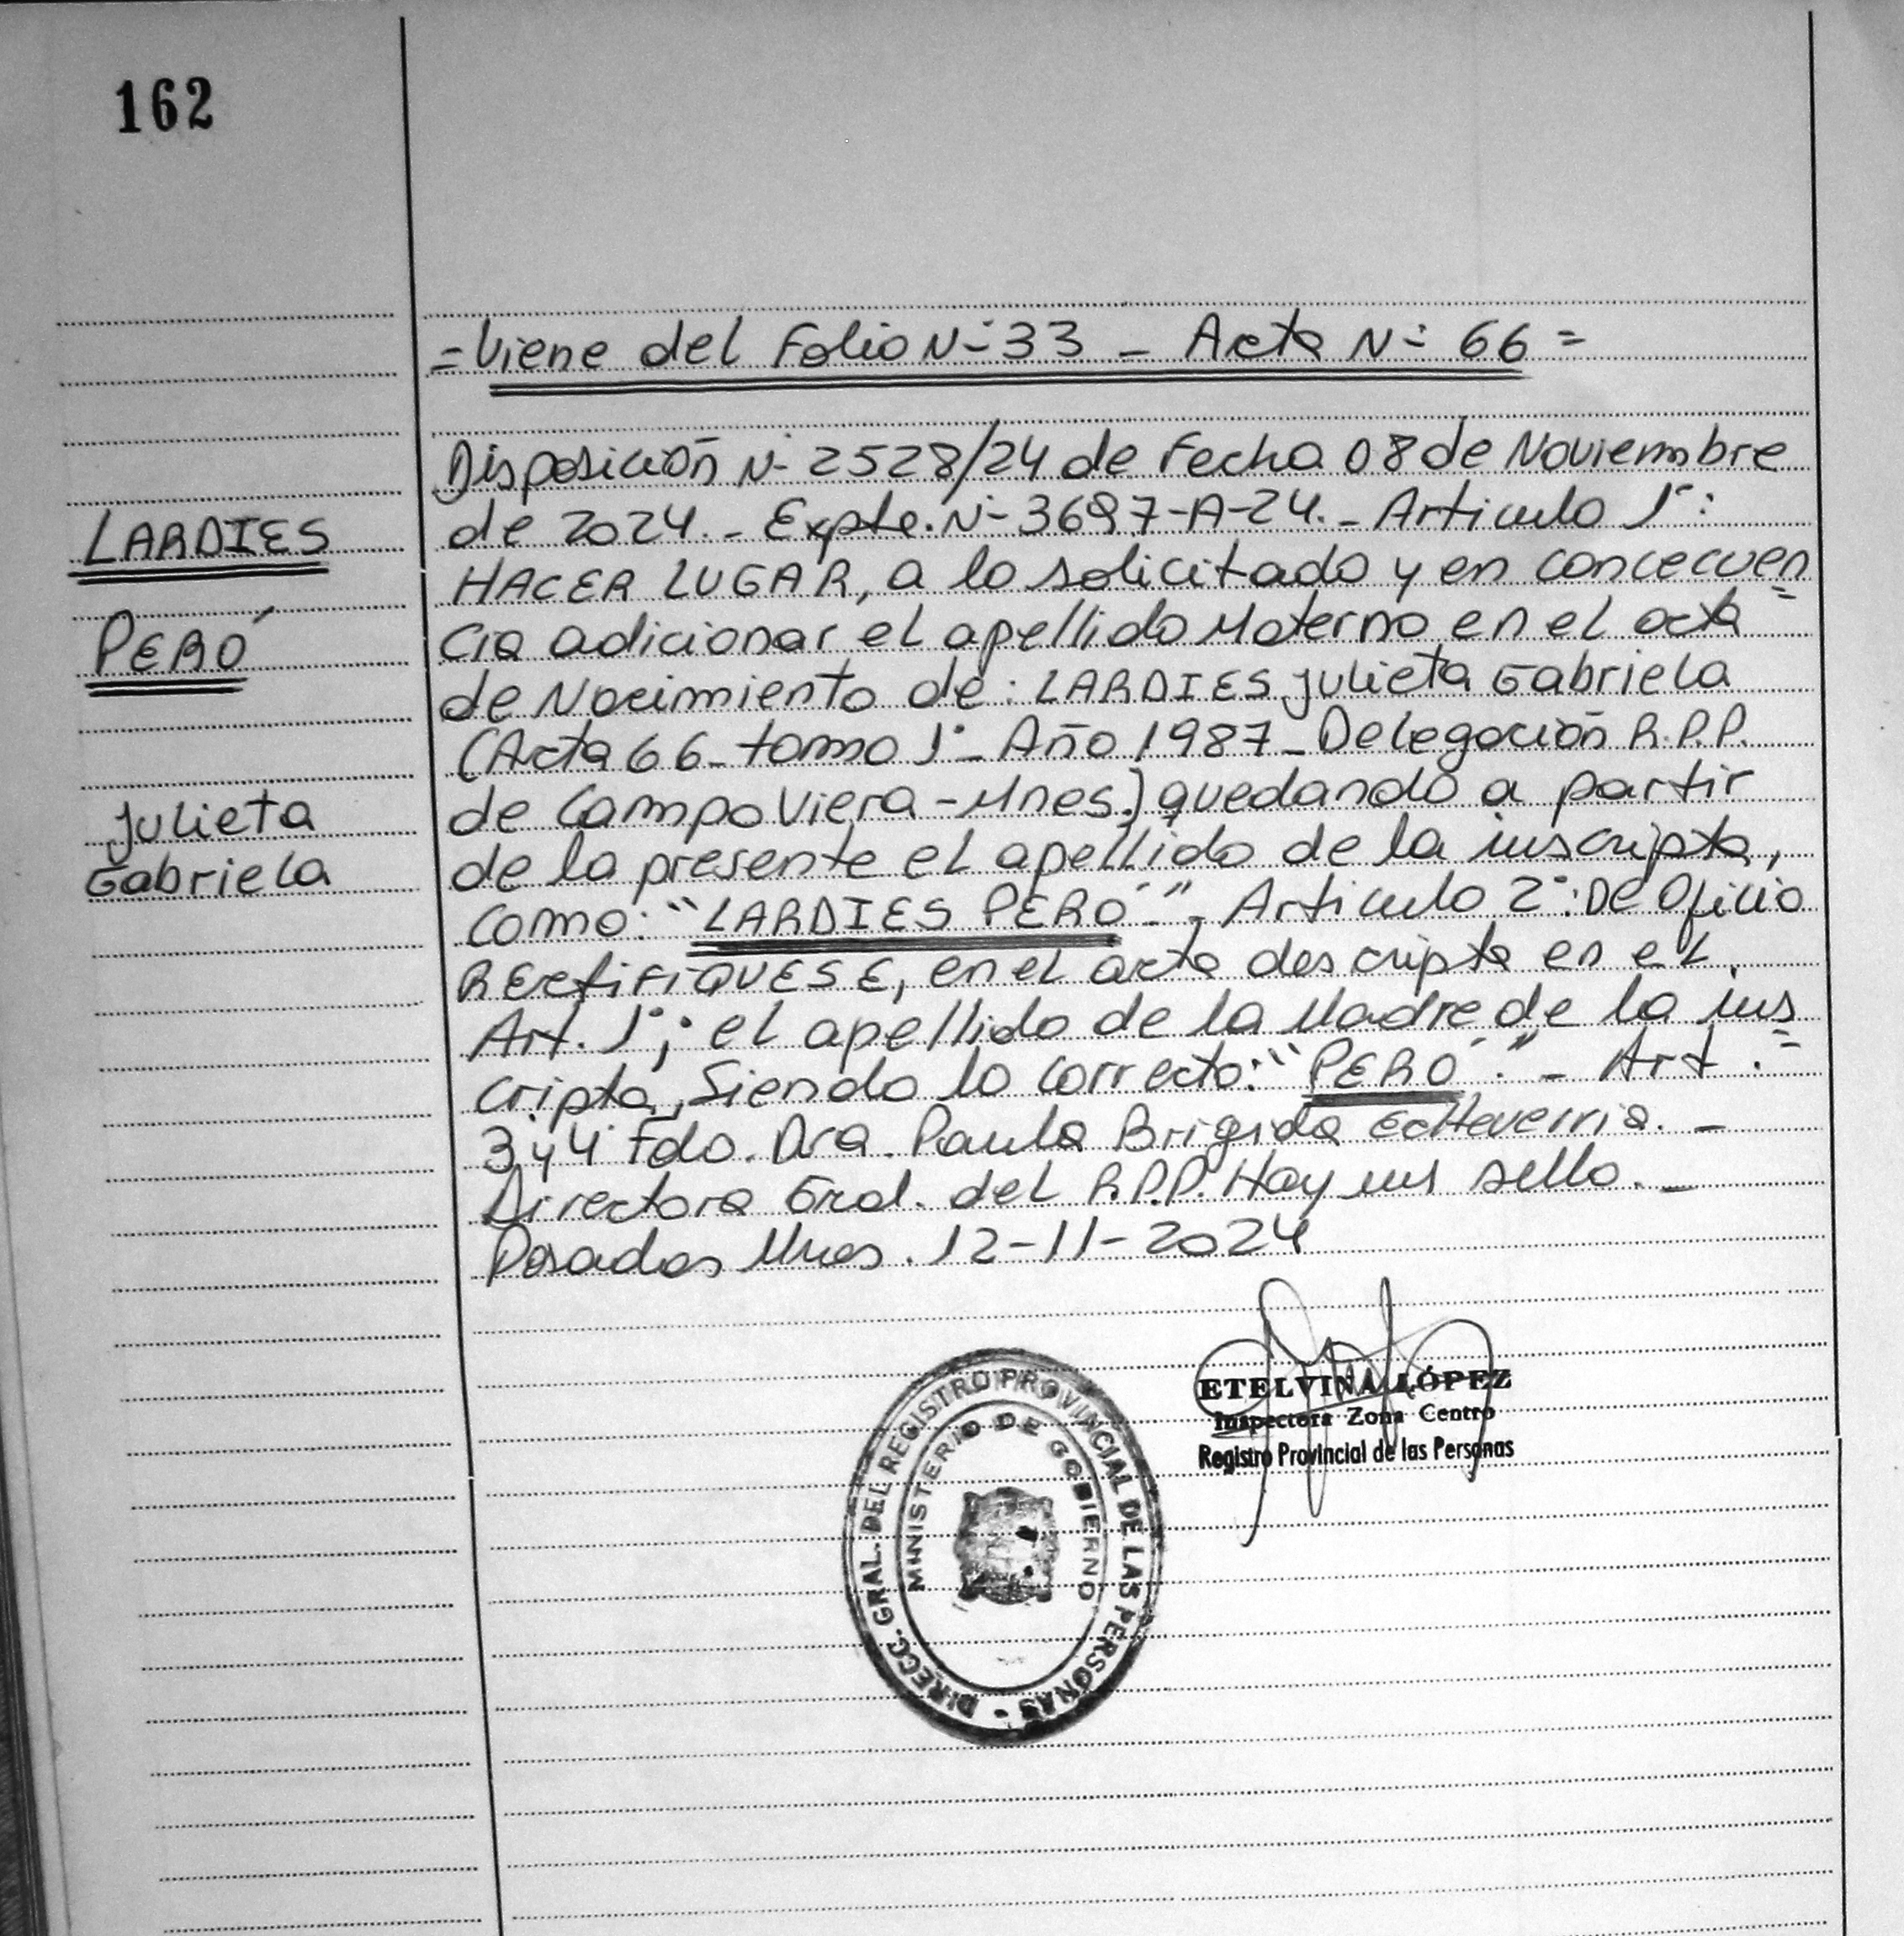 162
= Viene del Folio N- 33 - Acta N- 66 =
Disposición N- 2528/24 de Fecha 08 de Noviembre
de 2024.- Expte. N- 3697-A-24.- Articulo 1°:
HACER LUGAR, a lo solicitado y en concecuen=
cia adicionar el apellido Materno en el acta
de Nacimiento de: LARDIES Julieta Gabriela
(Acta 66- tomo 1°- Año 1987- Delegación R.P.P.
de Campo Viera - Mnes.) quedando a partir
de la presente el apellido de la inscripta,
como: "LARDIES PERÓ".- Articulo 2°: De Oficio
RECTIFIQUESE, en el acta descripta en el
Art. 1°; el apellido de la Madre de la ins=
cripta, Siendo lo correcto: "PERÓ". - Art.
3 y 4 Fdo. Dra. Paula Brigida Echeverria. -
Directora Gral. del R.P.P. Hay un sello. -
Posadas Mnes. 12-11-2024
LARDIES
PERÓ
Julieta
Gabriela
ETELVINA LÓPEZ
Inspectora Zona Centro
Registro Provincial de las Personas
DIRECC. GRAL. DEL REGISTRO PROVINCIAL DE LAS PERSONAS -
MINISTERIO DE GOBIERNO